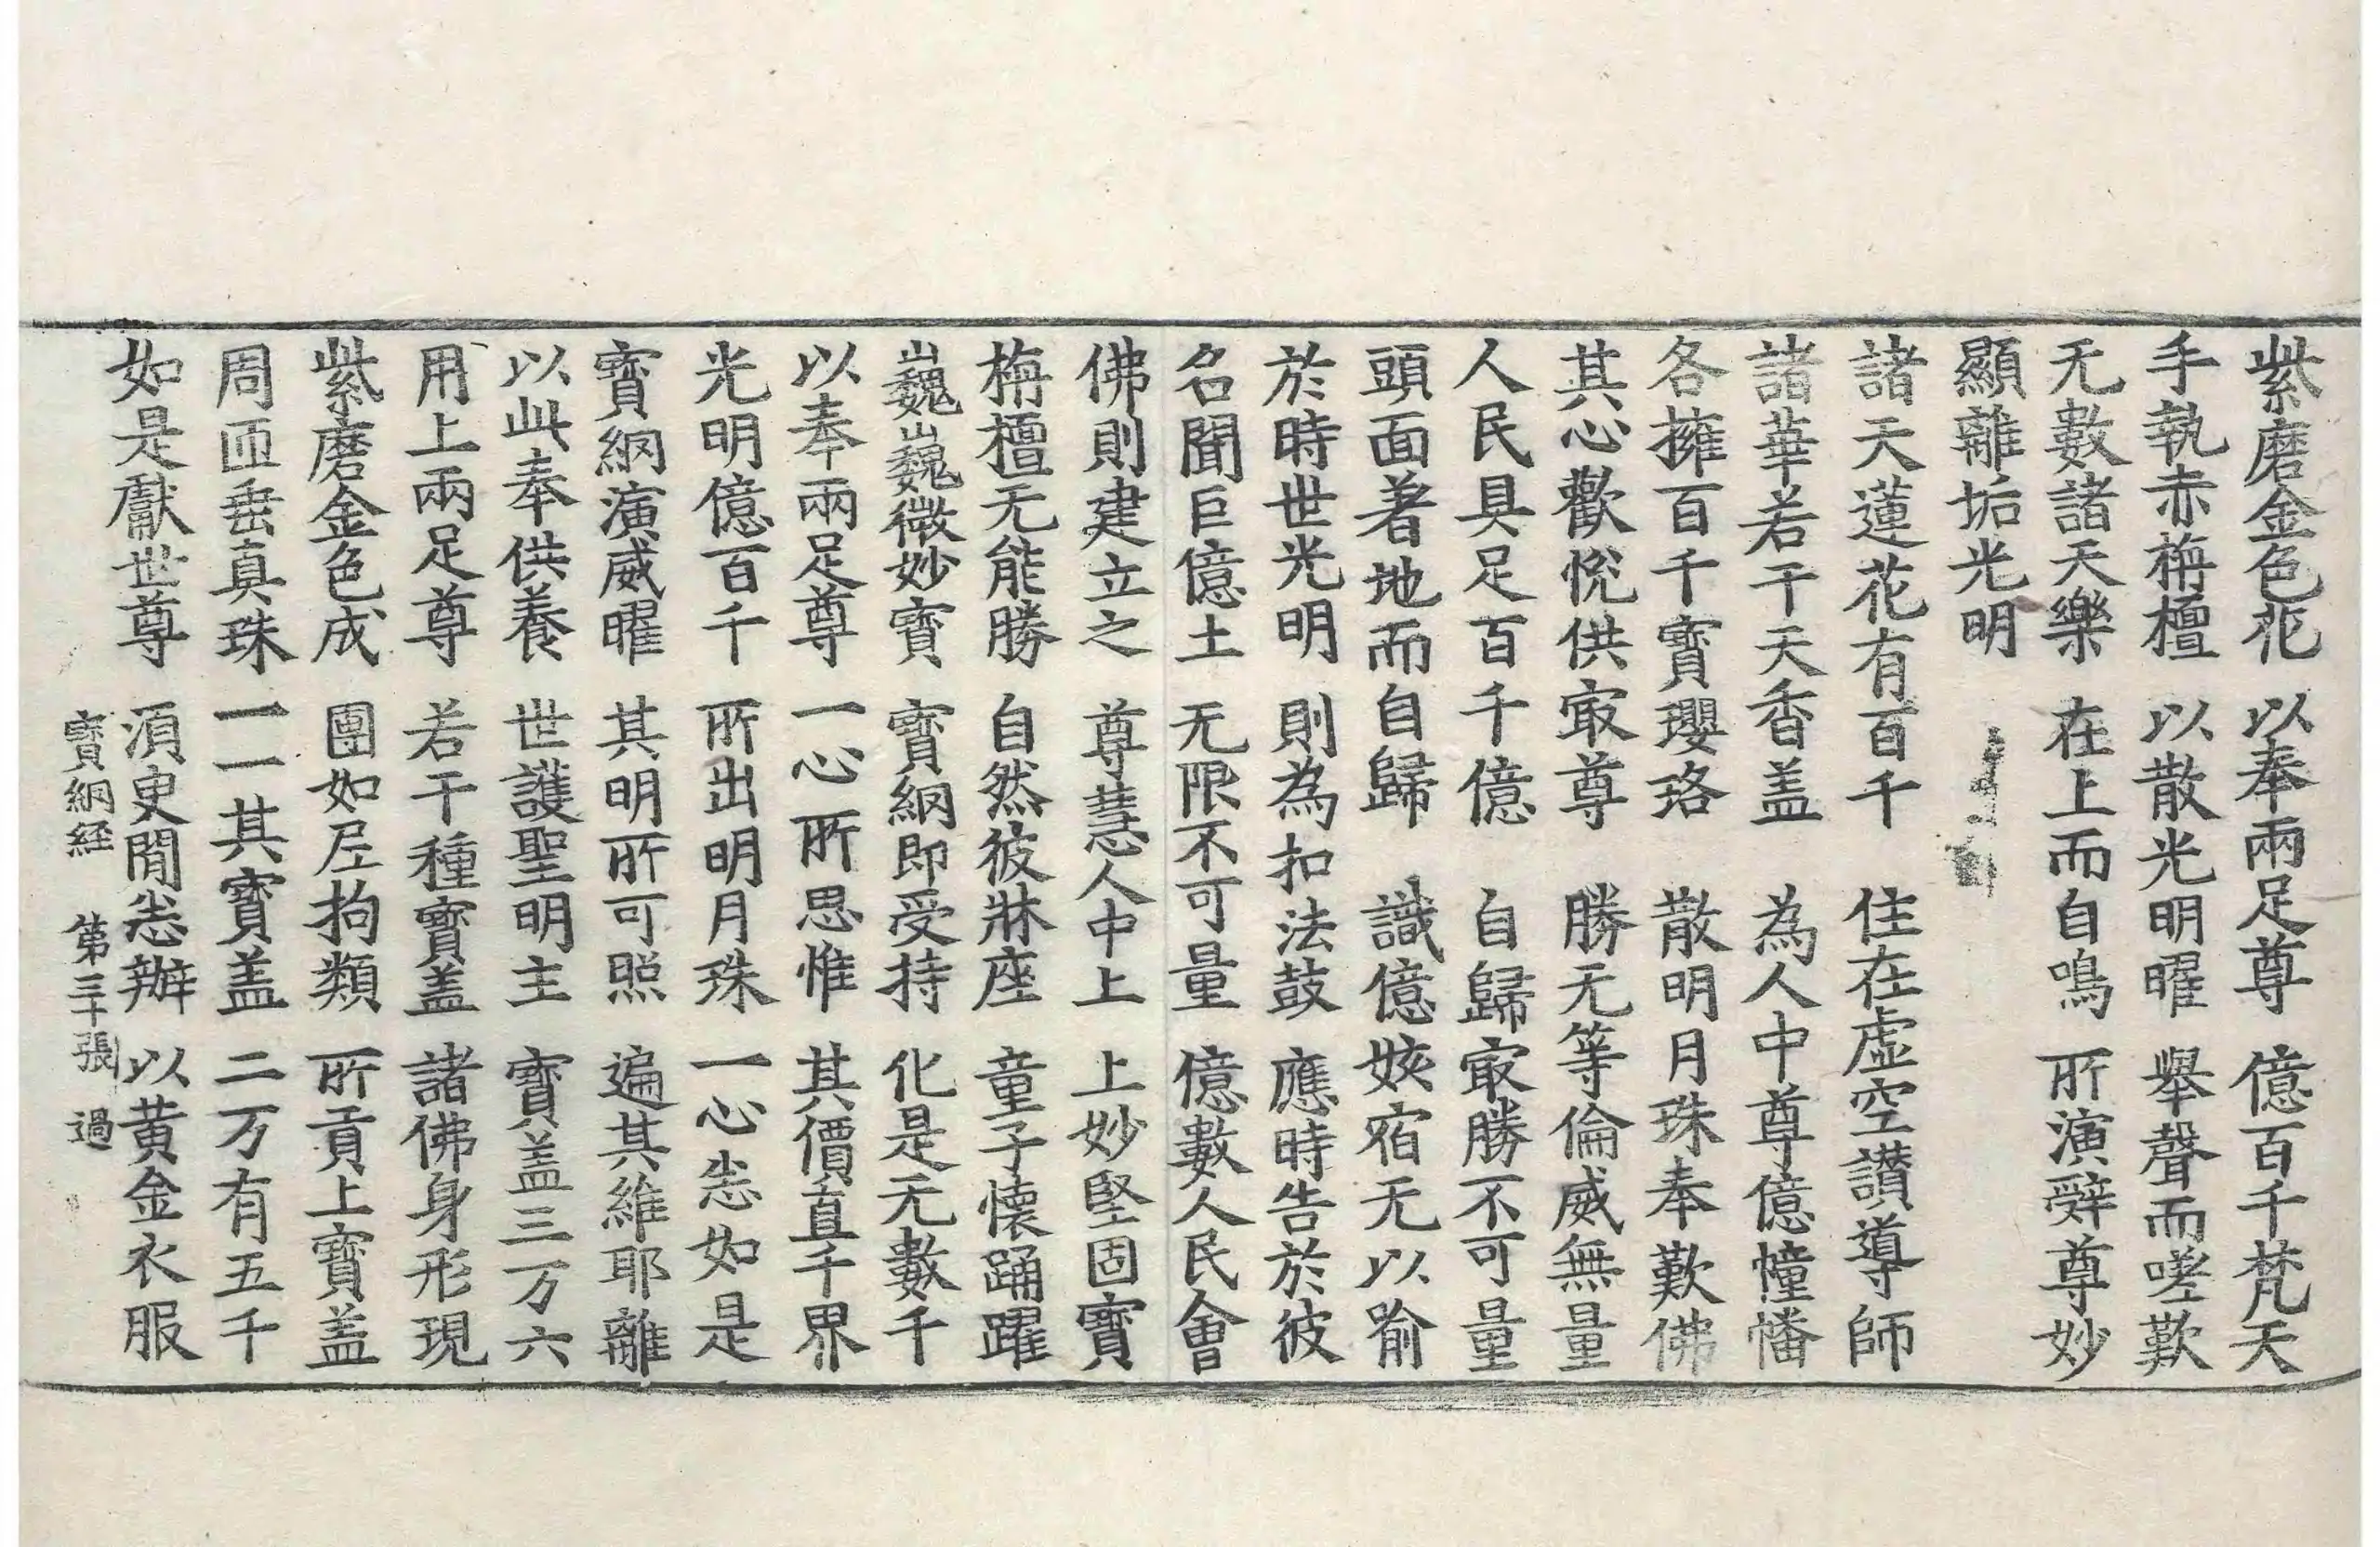 紫磨金色花　以奉兩足尊　億百千梵天
手執赤栴檀　以散光明曜　舉聲而嗟歎
无數諸天樂　在上而自鳴　所演辭尊妙
顯離垢光明
諸天蓮花有百千　住在虛空讃導師
諸華若干天香盖　為人中尊億幢幡
各擁百千寶瓔珞　散明月珠奉歎佛
其心歡悅供㝡尊　勝无等倫威無量
人民具足百千億　自歸㝡勝不可量
頭面著地而自歸　識億姟宿无以喻
於時世光明　則為扣法鼓　應時告於彼
名聞巨億土　无限不可量　億數人民會
佛則建立之　尊慧人中上　上妙堅固寶
栴檀无能勝　自然彼牀座　童子懷踊躍
巍巍微妙寶　寶網即受持　化是无數千
以奉兩足尊　一心所思惟　其價直千界
光明億百千　所出明月珠　一心恙如是
寶網演威曜　其明所可照　遍其維耶離
以此奉供養　世護聖明主　寶盖三万六
用上兩足尊　若干種寶盖　諸佛身形現
紫磨金色成　團如尼拘類　所貢上寶盖
周匝垂真珠　一一其寶盖　二万有五千
如是獻世尊　須臾閒恙辦　以黃金衣服
寶網經　第三十張　過